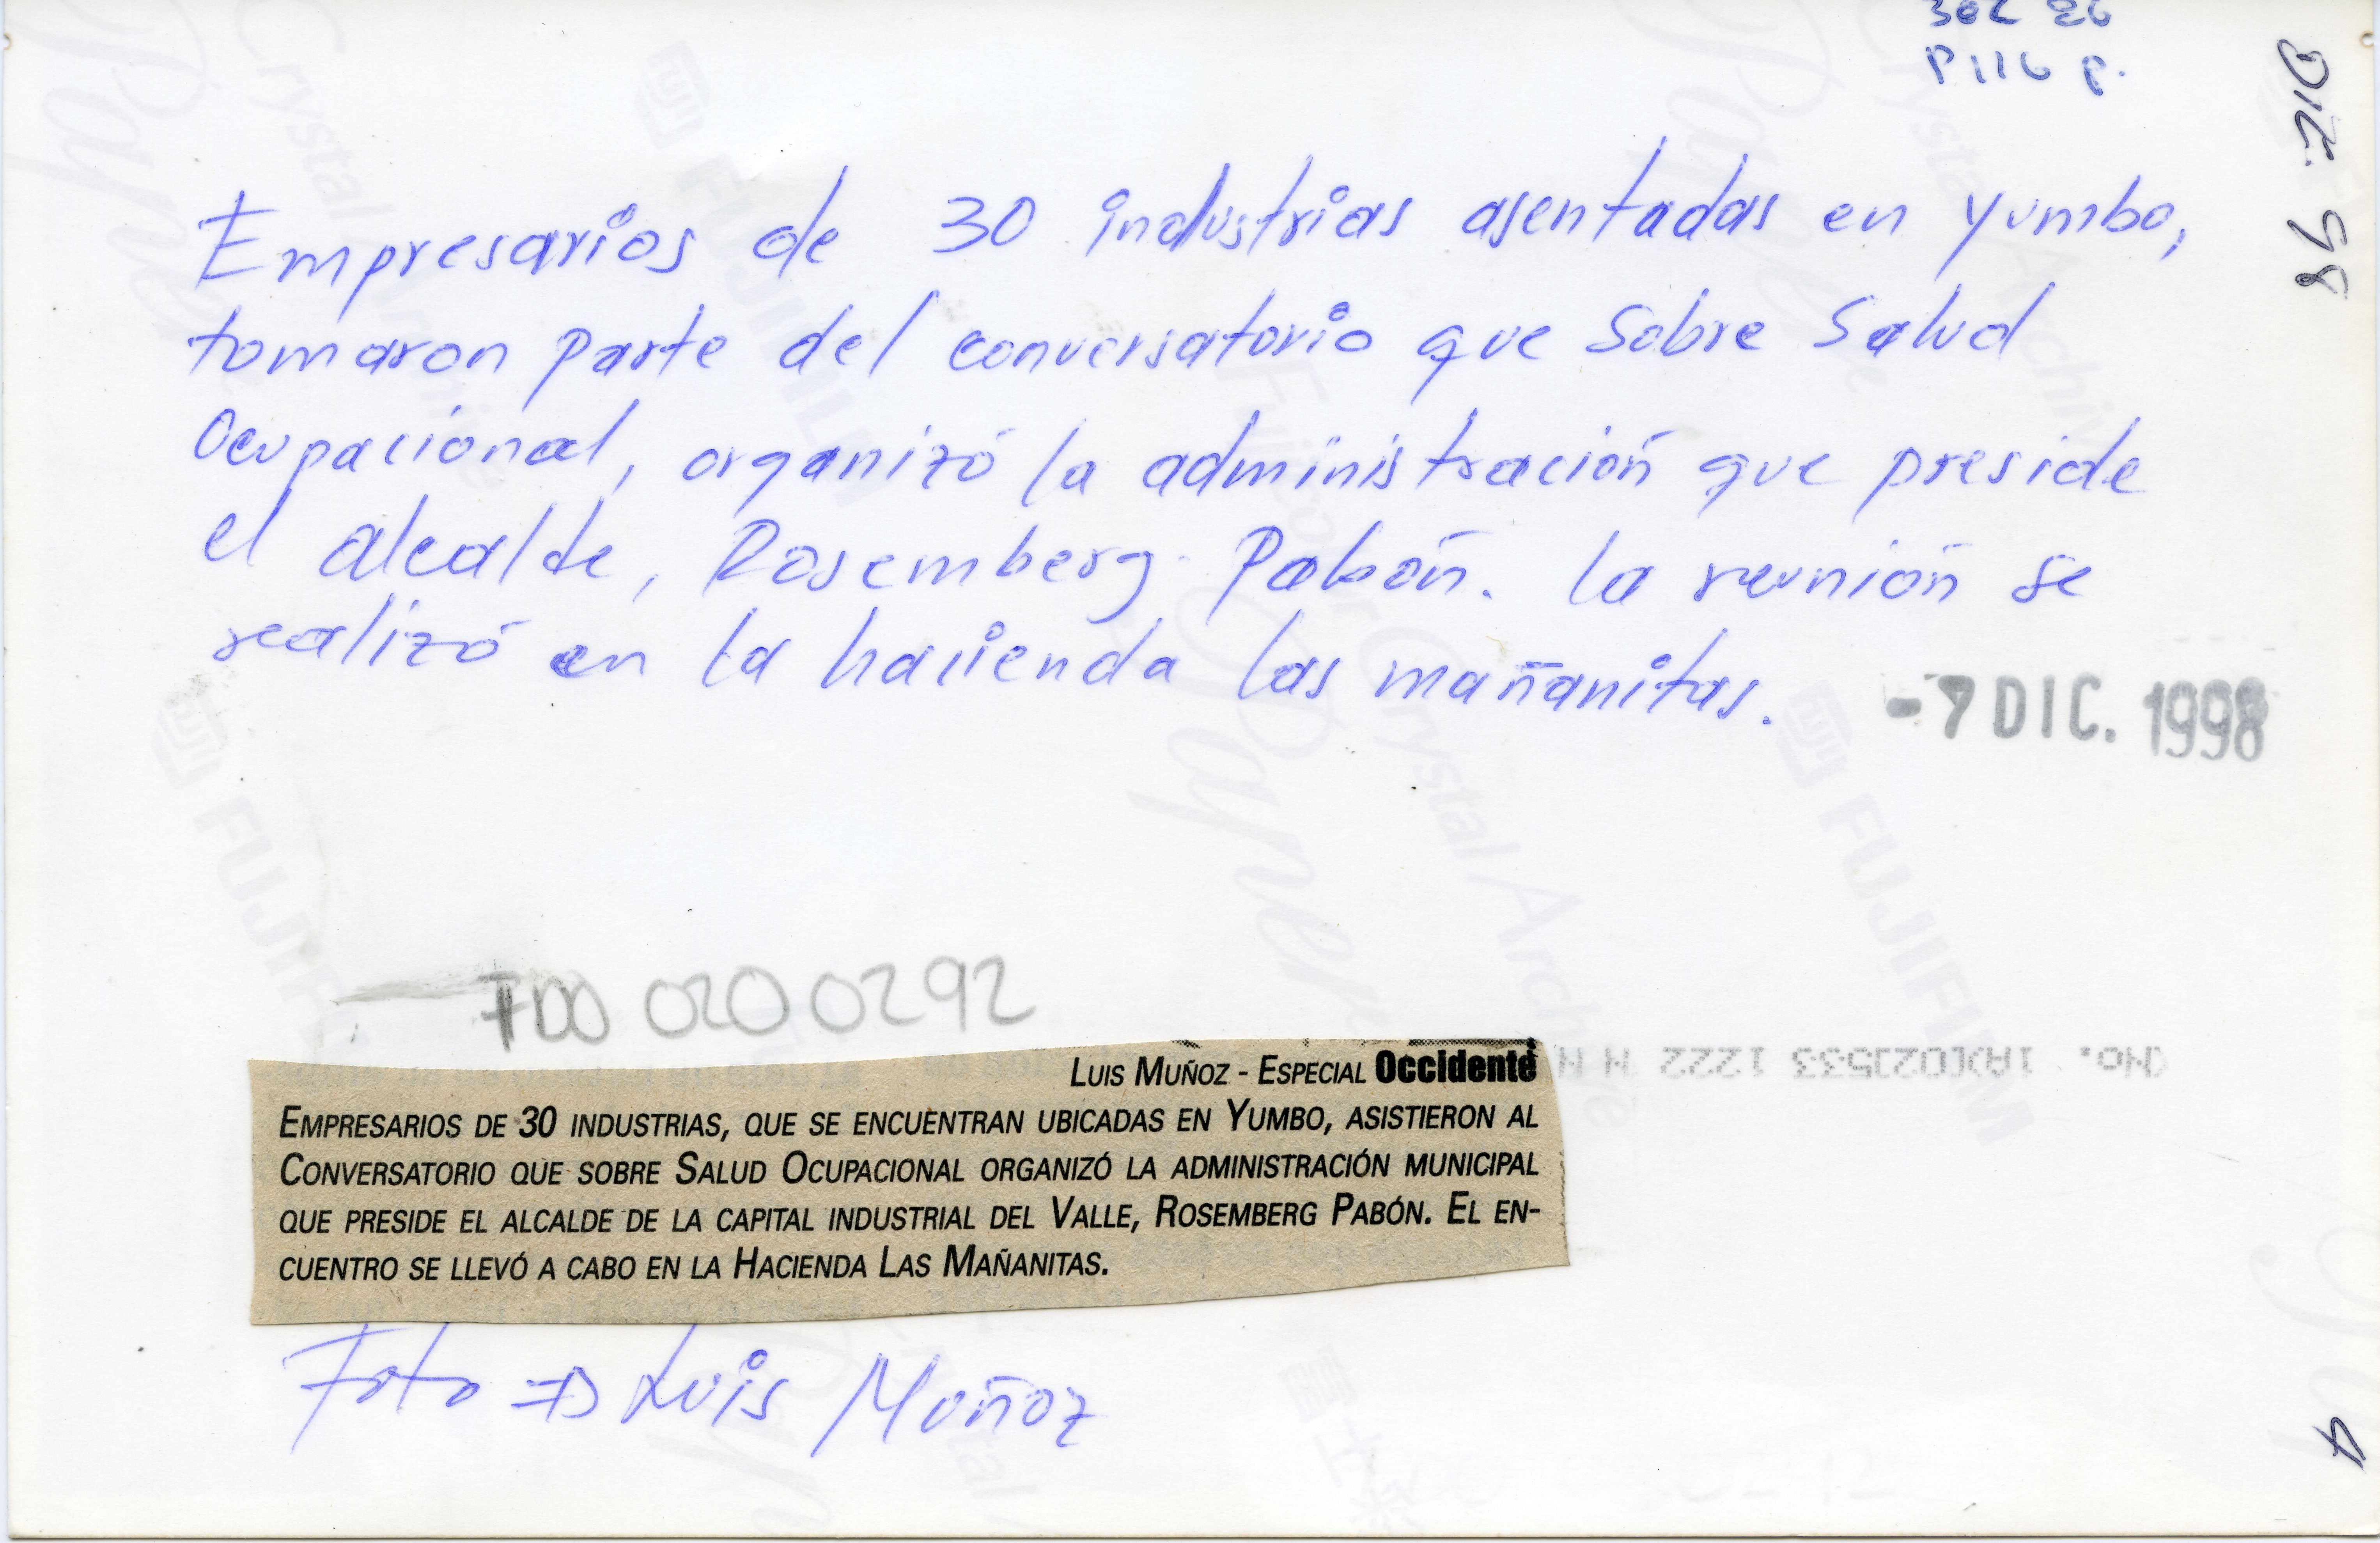 P116 P.
DIC. 98
Empresarios de 30 industrias asentadas en Yumbo,
tomaron parte del conversatorio que sobre Salud
Ocupacional, organizó la administración que preside
el alcalde, Rosemberg Pabón. la reunión se
realizó en la hacienda las mañanitas.
-7 DIC. 1998
FDO 020 0292
<No. 1A>[02]533 1222 N N
LUIS MUÑOZ - ESPECIAL Occidente
EMPRESARIOS DE 30 INDUSTRIAS, QUE SE ENCUENTRAN UBICADAS EN YUMBO, ASISTIERON AL
CONVERSATORIO QUE SOBRE SALUD OCUPACIONAL ORGANIZÓ LA ADMINISTRACIÓN MUNICIPAL
QUE PRESIDE EL ALCALDE DE LA CAPITAL INDUSTRIAL DEL VALLE, ROSEMBERG PABÓN. EL EN-
CUENTRO SE LLEVÓ A CABO EN LA HACIENDA LAS MAÑANITAS.
Foto => Luis Muñoz
4
FUJIFILM
Fujicolor Crystal Archive
Paper